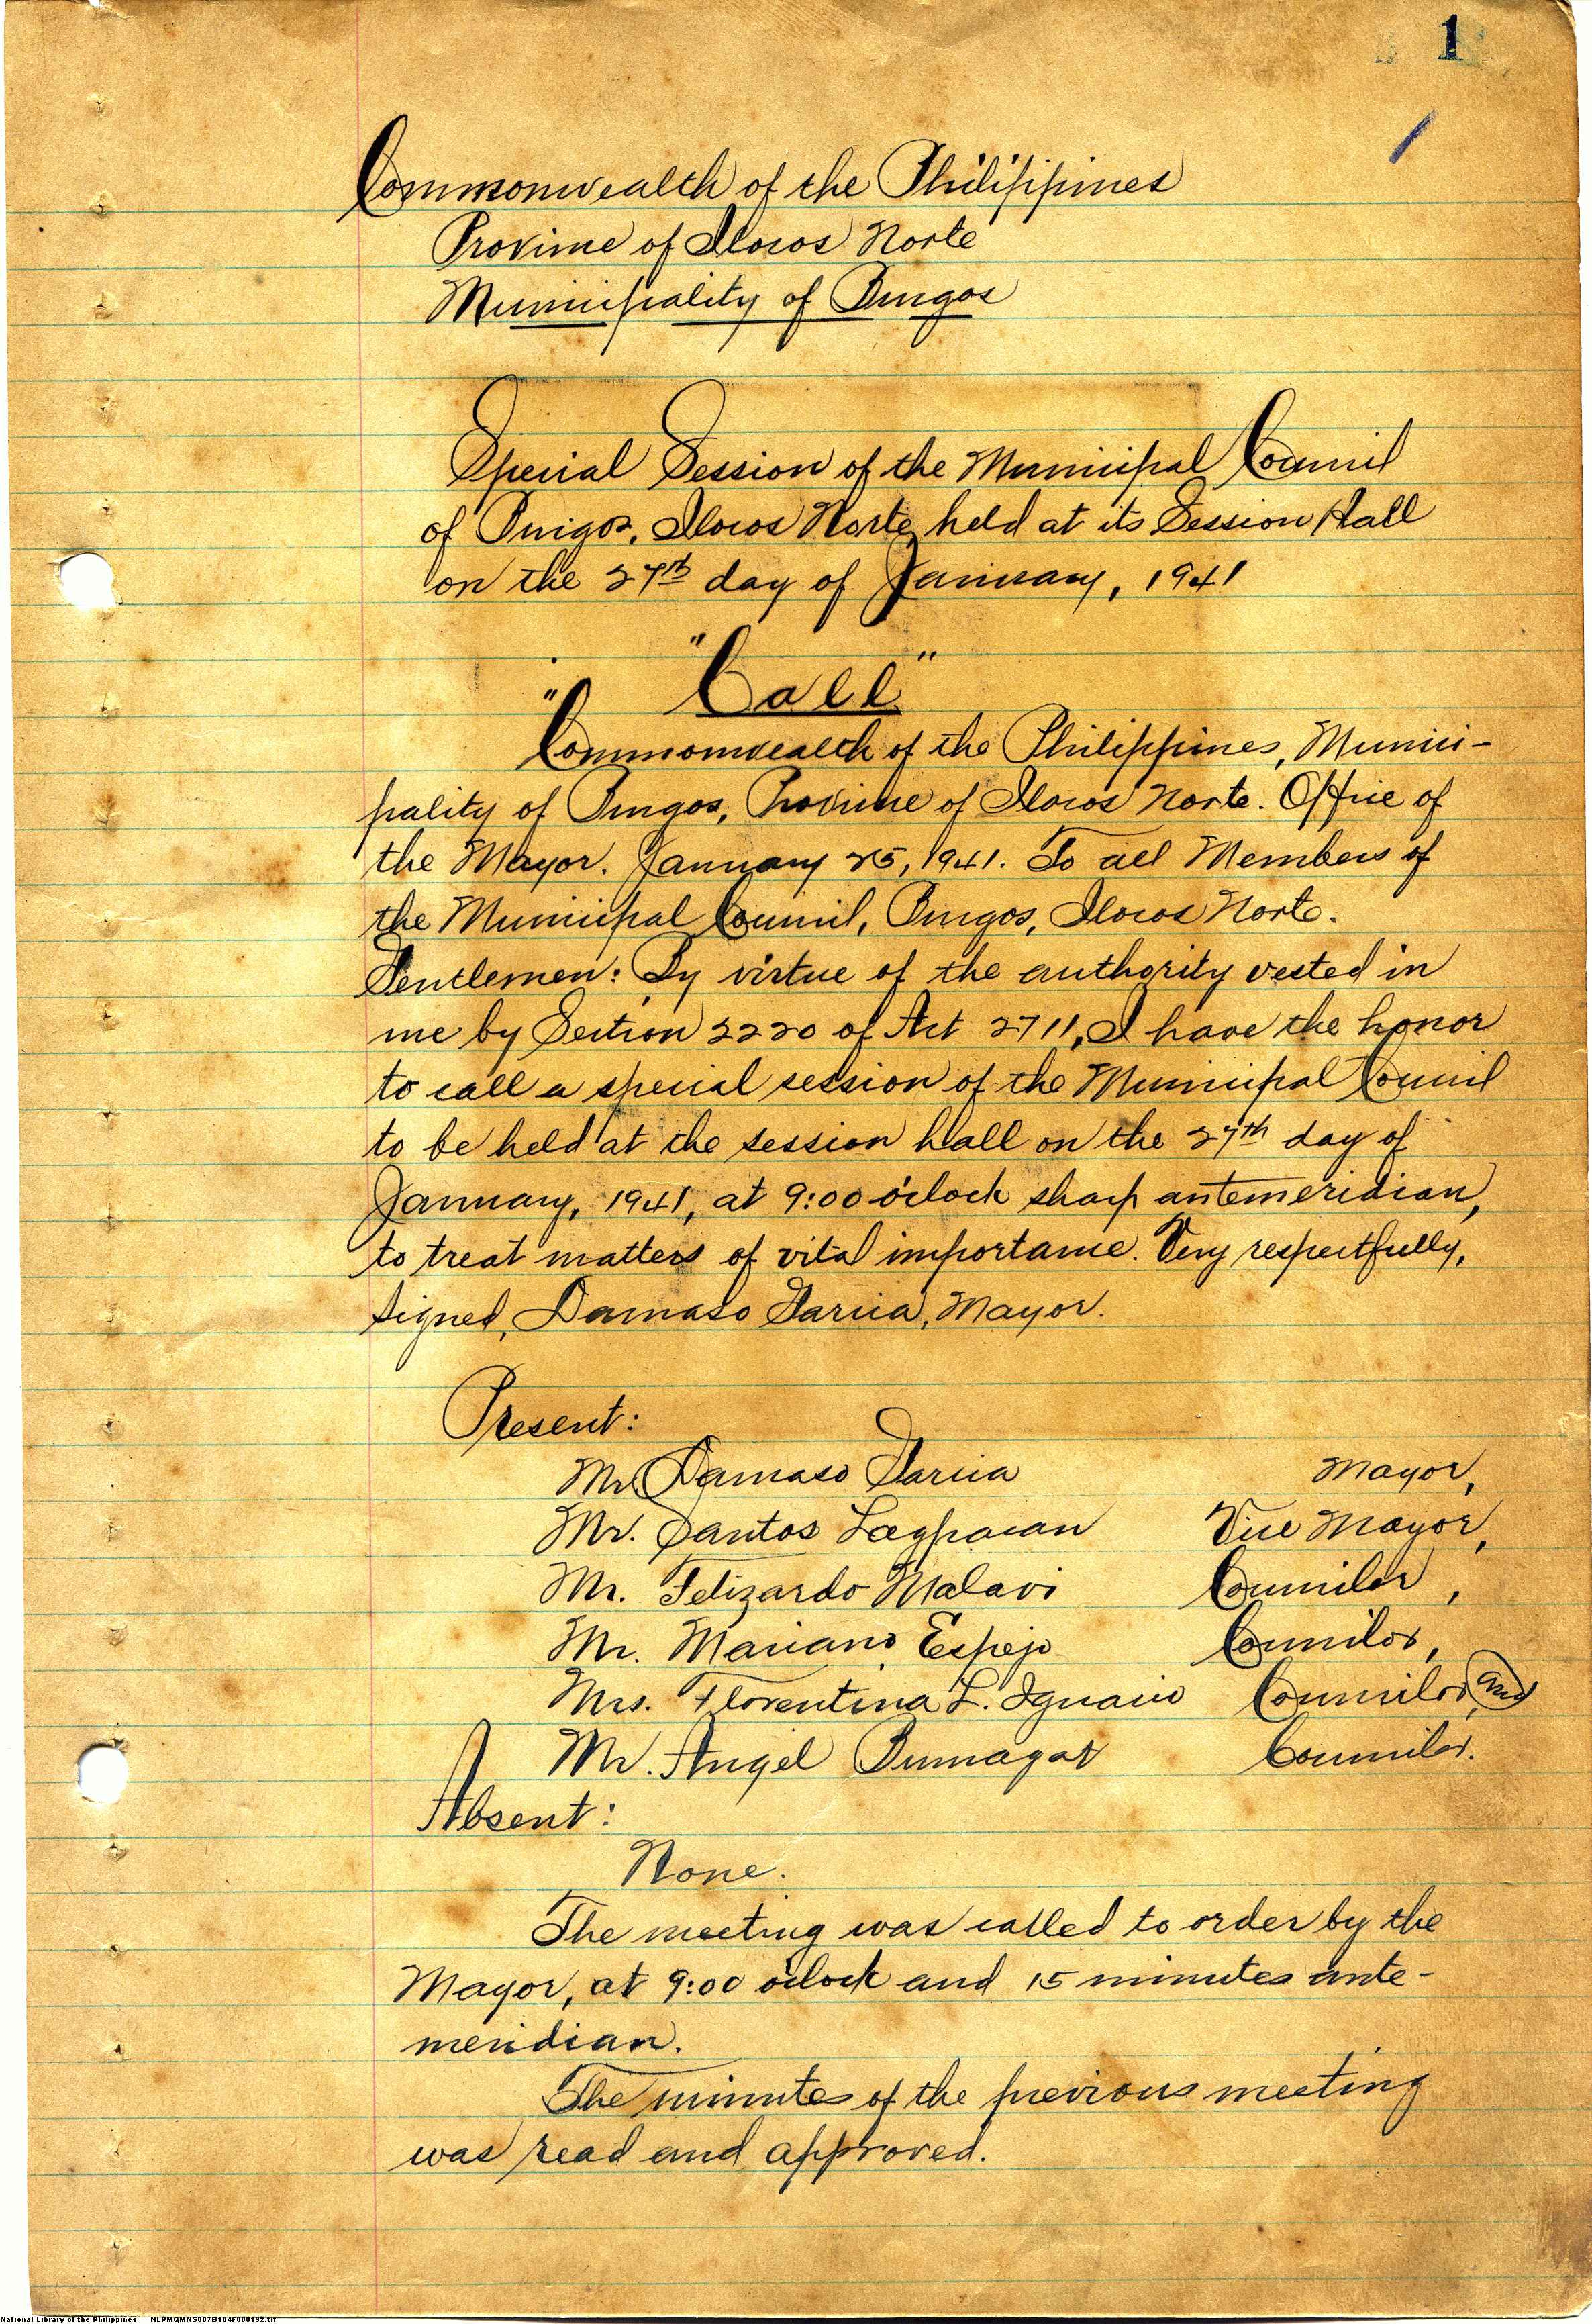 1
Commonwealth of the Philippines
Province of Ilocos Norte
Municipality of Burgos
Special Session of the Municipal Council
of Burgos, Ilocos Norte, held at its Session Hall
on the 27th day of January, 1941
"Call"
"Commonwealth of the Philippines, Munici-
pality of Burgos, Province of Ilocos Norte. Office of
the Mayor. January 25, 1941. To all Members of
the Municipal Council, Burgos, Ilocos Norte.
Gentlemen: By virtue of the authority vested in
me by Section 2220 of Act 2711, I have the honor
to call a special session of the Municipal Council
to be held at the session hall on the 27th day of
January, 1941, at 9:00 o'clock sharp antemeridian,
to treat matters of vital importance. Very respectfully,
signed, Damaso Garcia, Mayor.
Present:
Mr. Damaso Garcia Mayor,
Mr. Santos Lagpacan Vice Mayor,
Mr. Felizardo Malavi Councilor,
Mr. Mariano Espejo Councilor,
Mrs. Florentina L. Ignacio Councilor, and
Mr. Angel Bumagat Councilor.
Absent:
None.
The meeting was called to order by the
Mayor, at 9:00 o'clock and 15 minutes ante-
meridian.
The minutes of the previous meeting
was read and approved.
National Library of the Philippines NLPMQMNS007B104F000192.tif